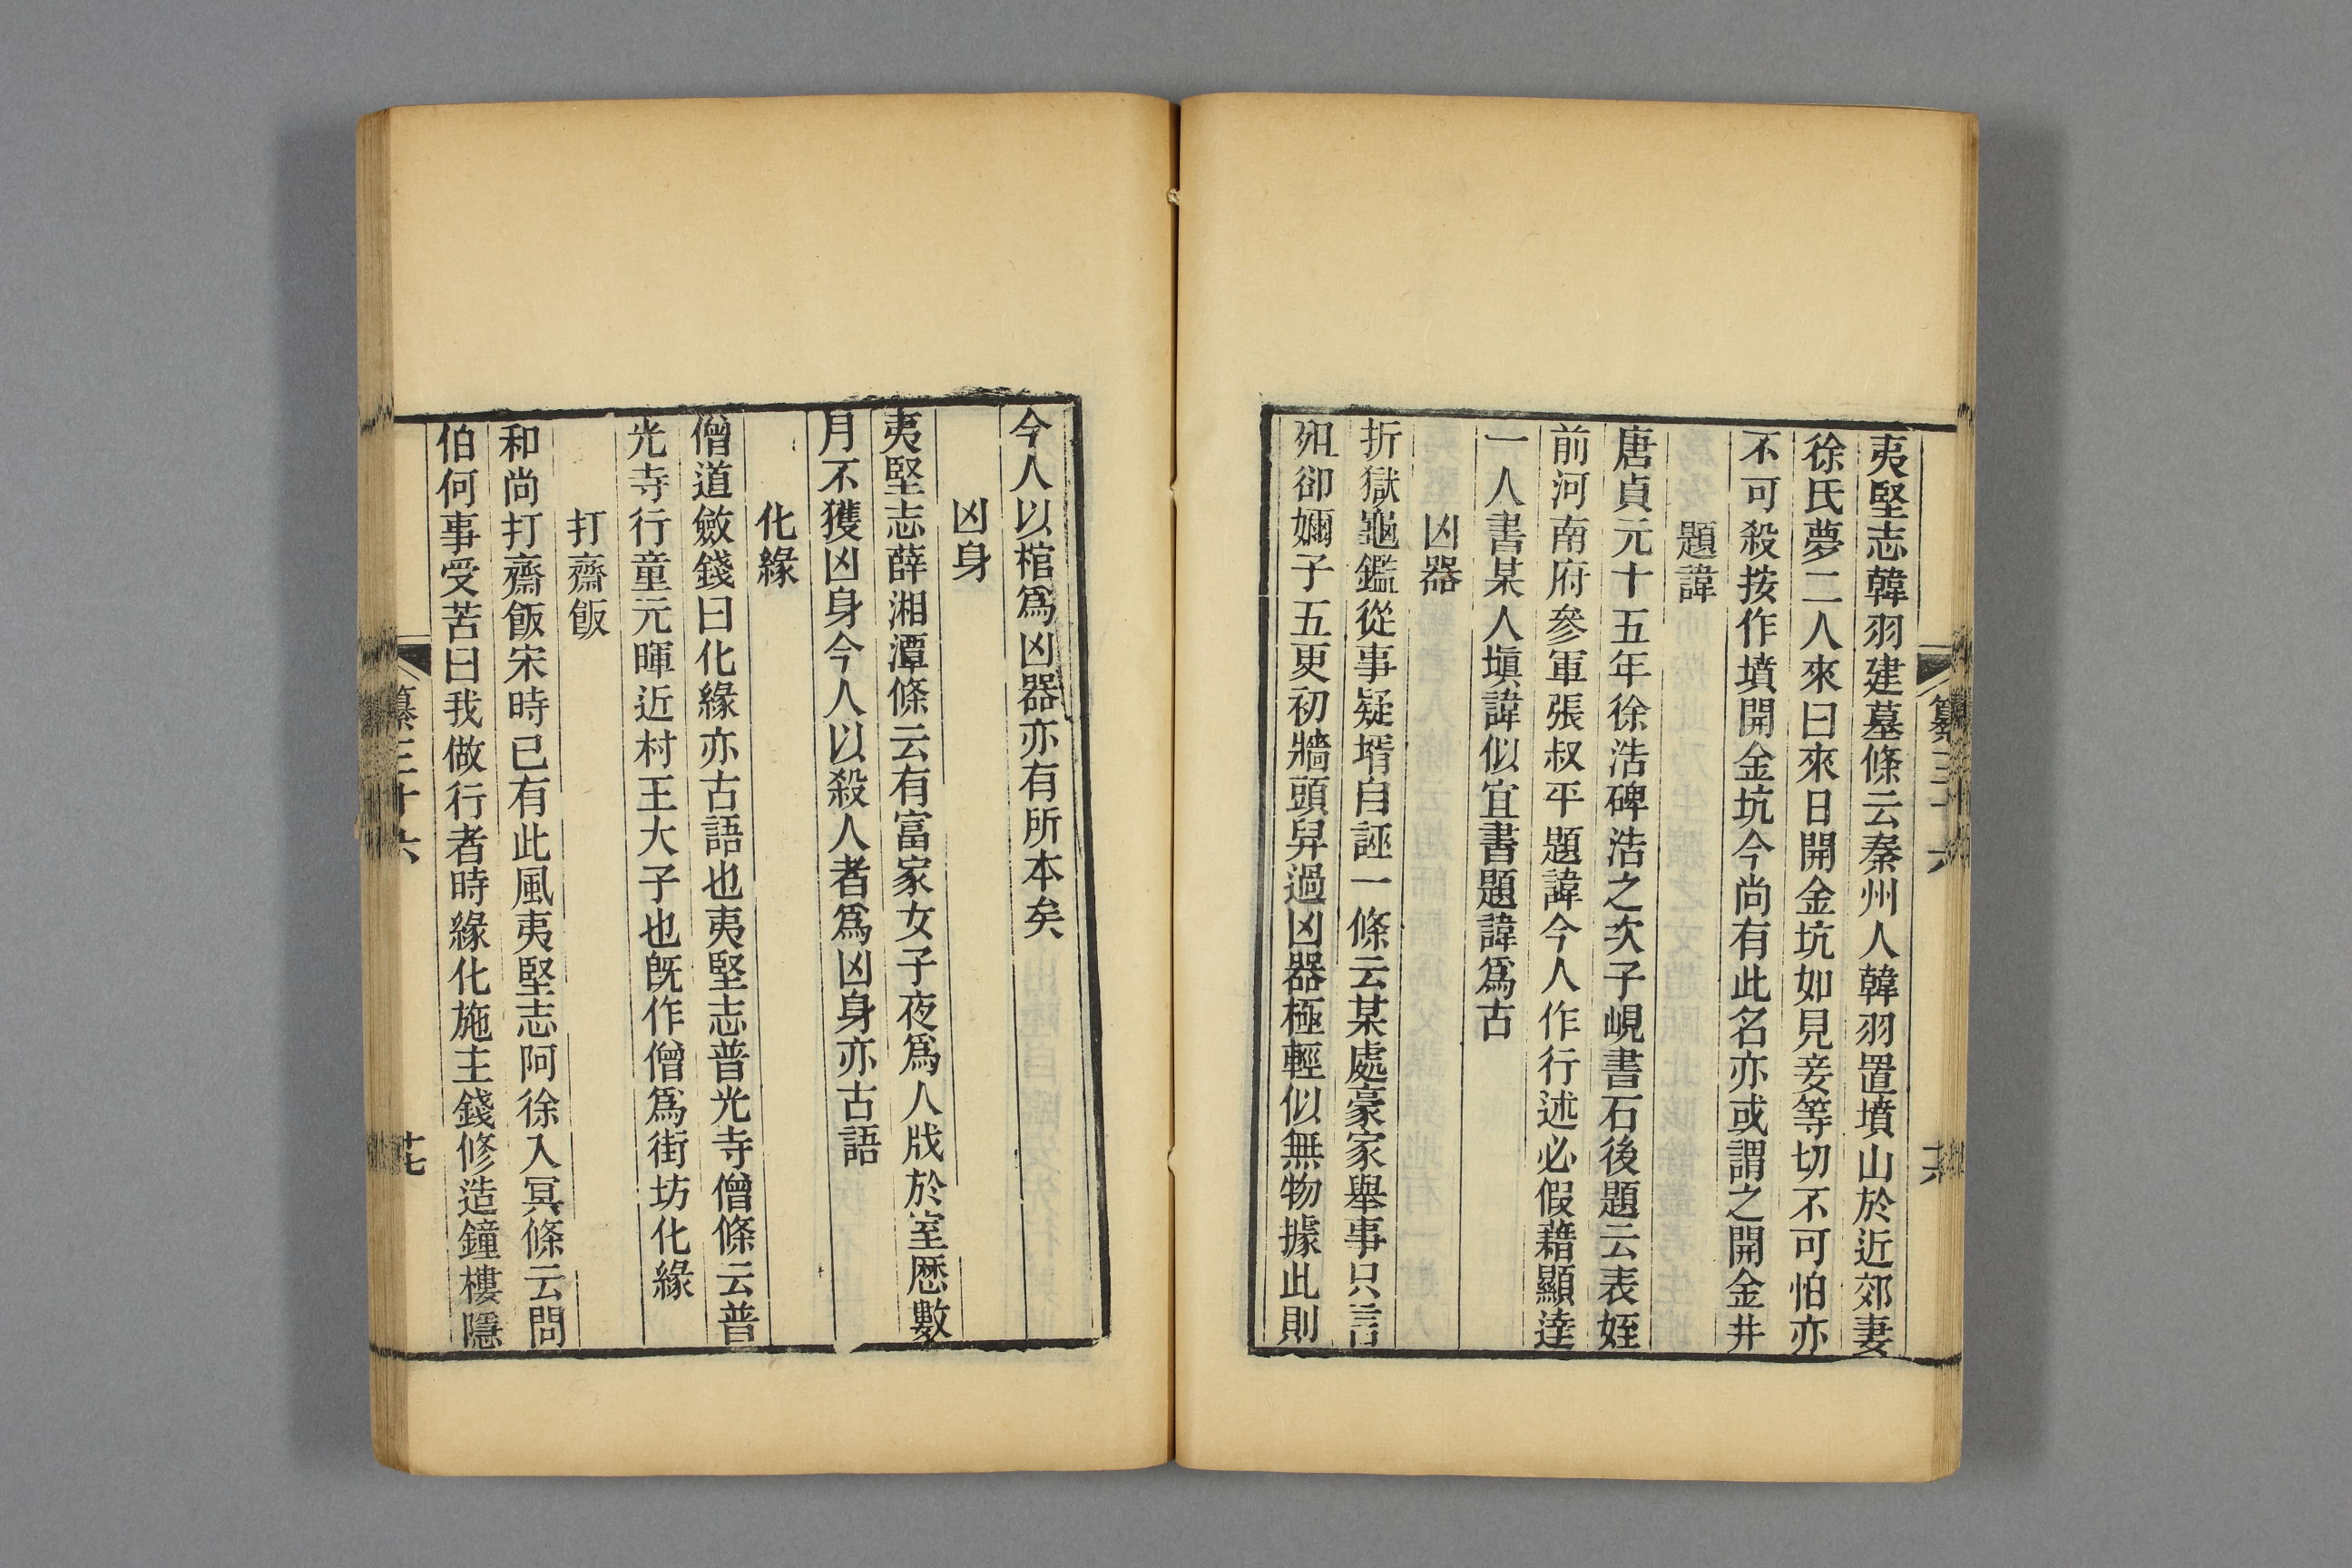 夷堅志韓羽建墓條云秦州人韓羽置墳山於近郊妻
徐氏夢二人來曰來日開金坑如見妾等切不可怕亦
不可殺按作墳開金坑今尚有此名亦或謂之開金井
題諱
唐貞元十五年徐浩碑浩之次子峴書石後題云表姪
前河南府參軍張叔平題諱今人作行述必假藉顯達
一人書某人塡諱似宜書題諱爲古
凶器
折獄龜鑑從事疑壻自誣一條云某處豪家舉事只言
殂卻嬭子五更初牆頭舁過凶器極輕似無物據此則
今人以棺爲凶器亦有所本矣
凶身
夷堅志薛湘潭條云有富家女子夜爲人戕於室歷數
月不獲凶身今人以殺人者爲凶身亦古語
化緣
僧道斂錢曰化緣亦古語也夷堅志普光寺僧條云普
光寺行童元暉近村王大子也旣作僧爲街坊化緣
打齋飯
和尚打齋飯宋時已有此風夷堅志阿徐入冥條云問
伯何事受苦曰我做行者時緣化施主錢修造鐘樓隱
纂三十六